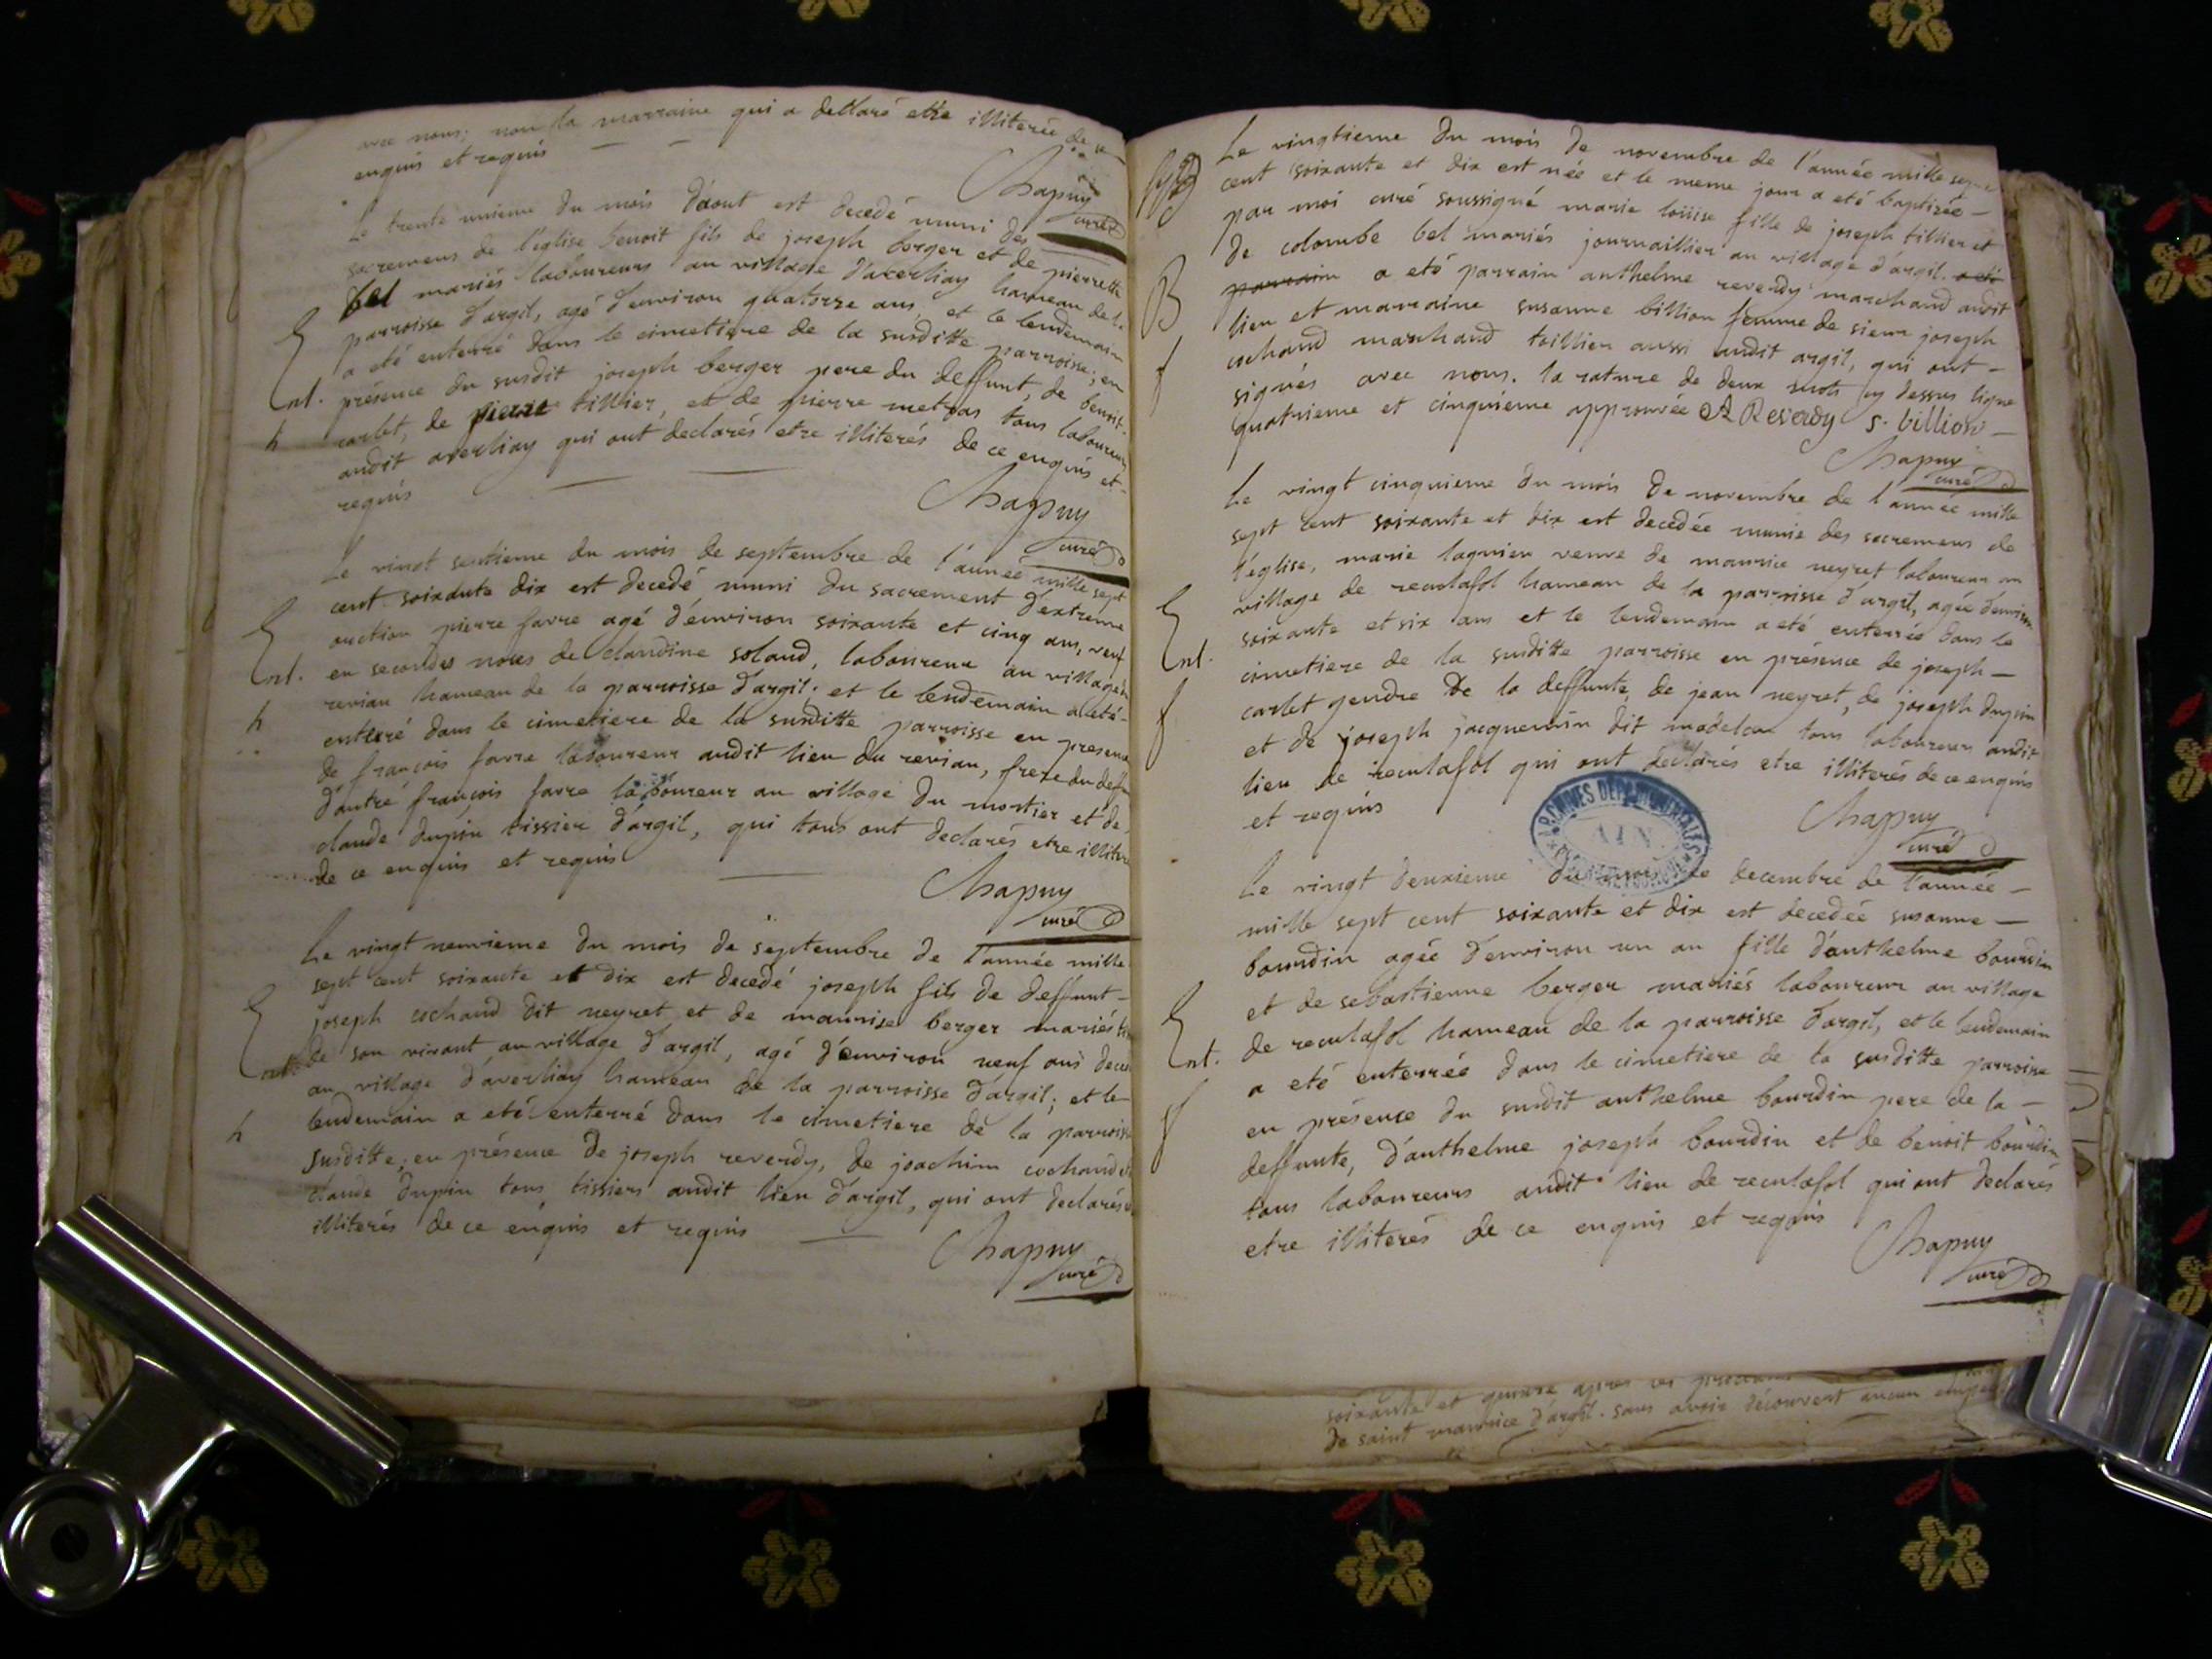 avec nous; non la marraine qui a declaré etre illiterée de ce
enquis et requis
Chapuy
curé
Le trente unieme du mois d'aout est decedé muni des
sacremens de l'eglise benoit fils de joseph berger et de pierrette
bel mariés laboureurs au village d'averliay hameau de la
parroisse d'argil, agé d'environ quatorze ans, et le lendemain
a eté enterré dans le cimetiere de la susditte parroisse; en
Ent. présence du susdit joseph berger pere du deffunt, de benoit
h carlet, de pierre tillier, et de pierre metras tous laboureurs
audit averliay qui ont declarés etre illiterés de ce enquis et
requis
Chapuy
curé
Le vingt septieme du mois de septembre de l'année mille sept
cent soixante dix est decedé muni du sacrement d'extreme
onction pierre favre agé d'environ soixante et cinq ans, veuf
Ent. en secondes noces de claudine soland, laboureur au village du
revian hameau de la parroisse d'argil; et le lendemain a eté
h enterré dans le cimetiere de la susditte parroisse en presence
de françois favre laboureur audit lieu du revian, frere du deffunt
d'autre françois favre laboureur au village du mortier et de
claude dupin tissier d'argil, qui tous ont declarés etre illiterés
de ce enquis et requis
Chapuy
curé
Le vingt neuvieme du mois de septembre de l'année mille
sept cent soixante et dix est decedé joseph fils de deffunt
joseph cochand dit neyret et de maurise berger mariés
Ent. de son vivant au village d'argil, agé d'environ neuf ans
au village d'averliay hameau de la parroisse d'argil; et le
lendemain a eté enterré dans le cimetiere de la parroisse
h susditte; en présence de joseph reverdy, de joachim cochand et
claude dupin tous tissiers audit lieu d'argil, qui ont declarés
illiterés de ce enquis et requis
Chapuy
curé
Le vingtieme du mois de novembre de l'année mille sept
cent soixante et dix est née et le meme jour a eté baptisée
par moi curé soussigné marie loüise fille de joseph tillier et
de colombe bel mariés journaillier au village d'argil. a eté
B parrain a eté parrain anthelme reverdy marchand audit
lieu et marraine susanne billion femme de sieur joseph
f cochand marchand toillier aussi audit argil, qui ont
signés avec nous. la rature de deux mots cy dessus ligne
quatrieme et cinquieme approuvée A Reverdy s. billion
Chapuy
curé
Le vingt cinquieme du mois de novembre de l'année mille
sept cent soixante et dix est decedée munie des sacremens de
l'église, marie lagnieu veuve de maurice neyret laboureur au
village de reculafol hameau de la parroisse d'argil, agée d'environ
soixante et six ans et le lendemain a eté enterrée dans le
Ent. cimetiere de la susditte parroisse en présence de joseph
f carlet gendre de la deffunte, de jean neyret, de joseph dupin
et de joseph jacquemin dit madelon tous laboureurs audit
lieu de reculafol qui ont declarés etre illiterés de ce enquis
et requis
Chapuy
curé
ARCHIVES DÉPARTEMENTALES
AIN
Le vingt deuxieme du mois de decembre de l'année
mille sept cent soixante et dix est decedée susanne
bourdin agée d'environ un an fille d'anthelme bourdin
et de sebastienne berger mariés laboureur au village
Ent. de reculafol hameau de la parroisse d'argil, et le lendemain
a eté enterrée dans le cimetiere de la susditte parroisse
f en présence du susdit anthelme bourdin pere de la
deffunte, d'anthelme joseph bourdin et de benoit bourdin
tous laboureurs audit lieu de reculafol qui ont declarés
etre illiterés de ce enquis et requis
Chapuy
curé
soixante et quinze après
de saint maurice d'argil. sans avoir découvert aucun